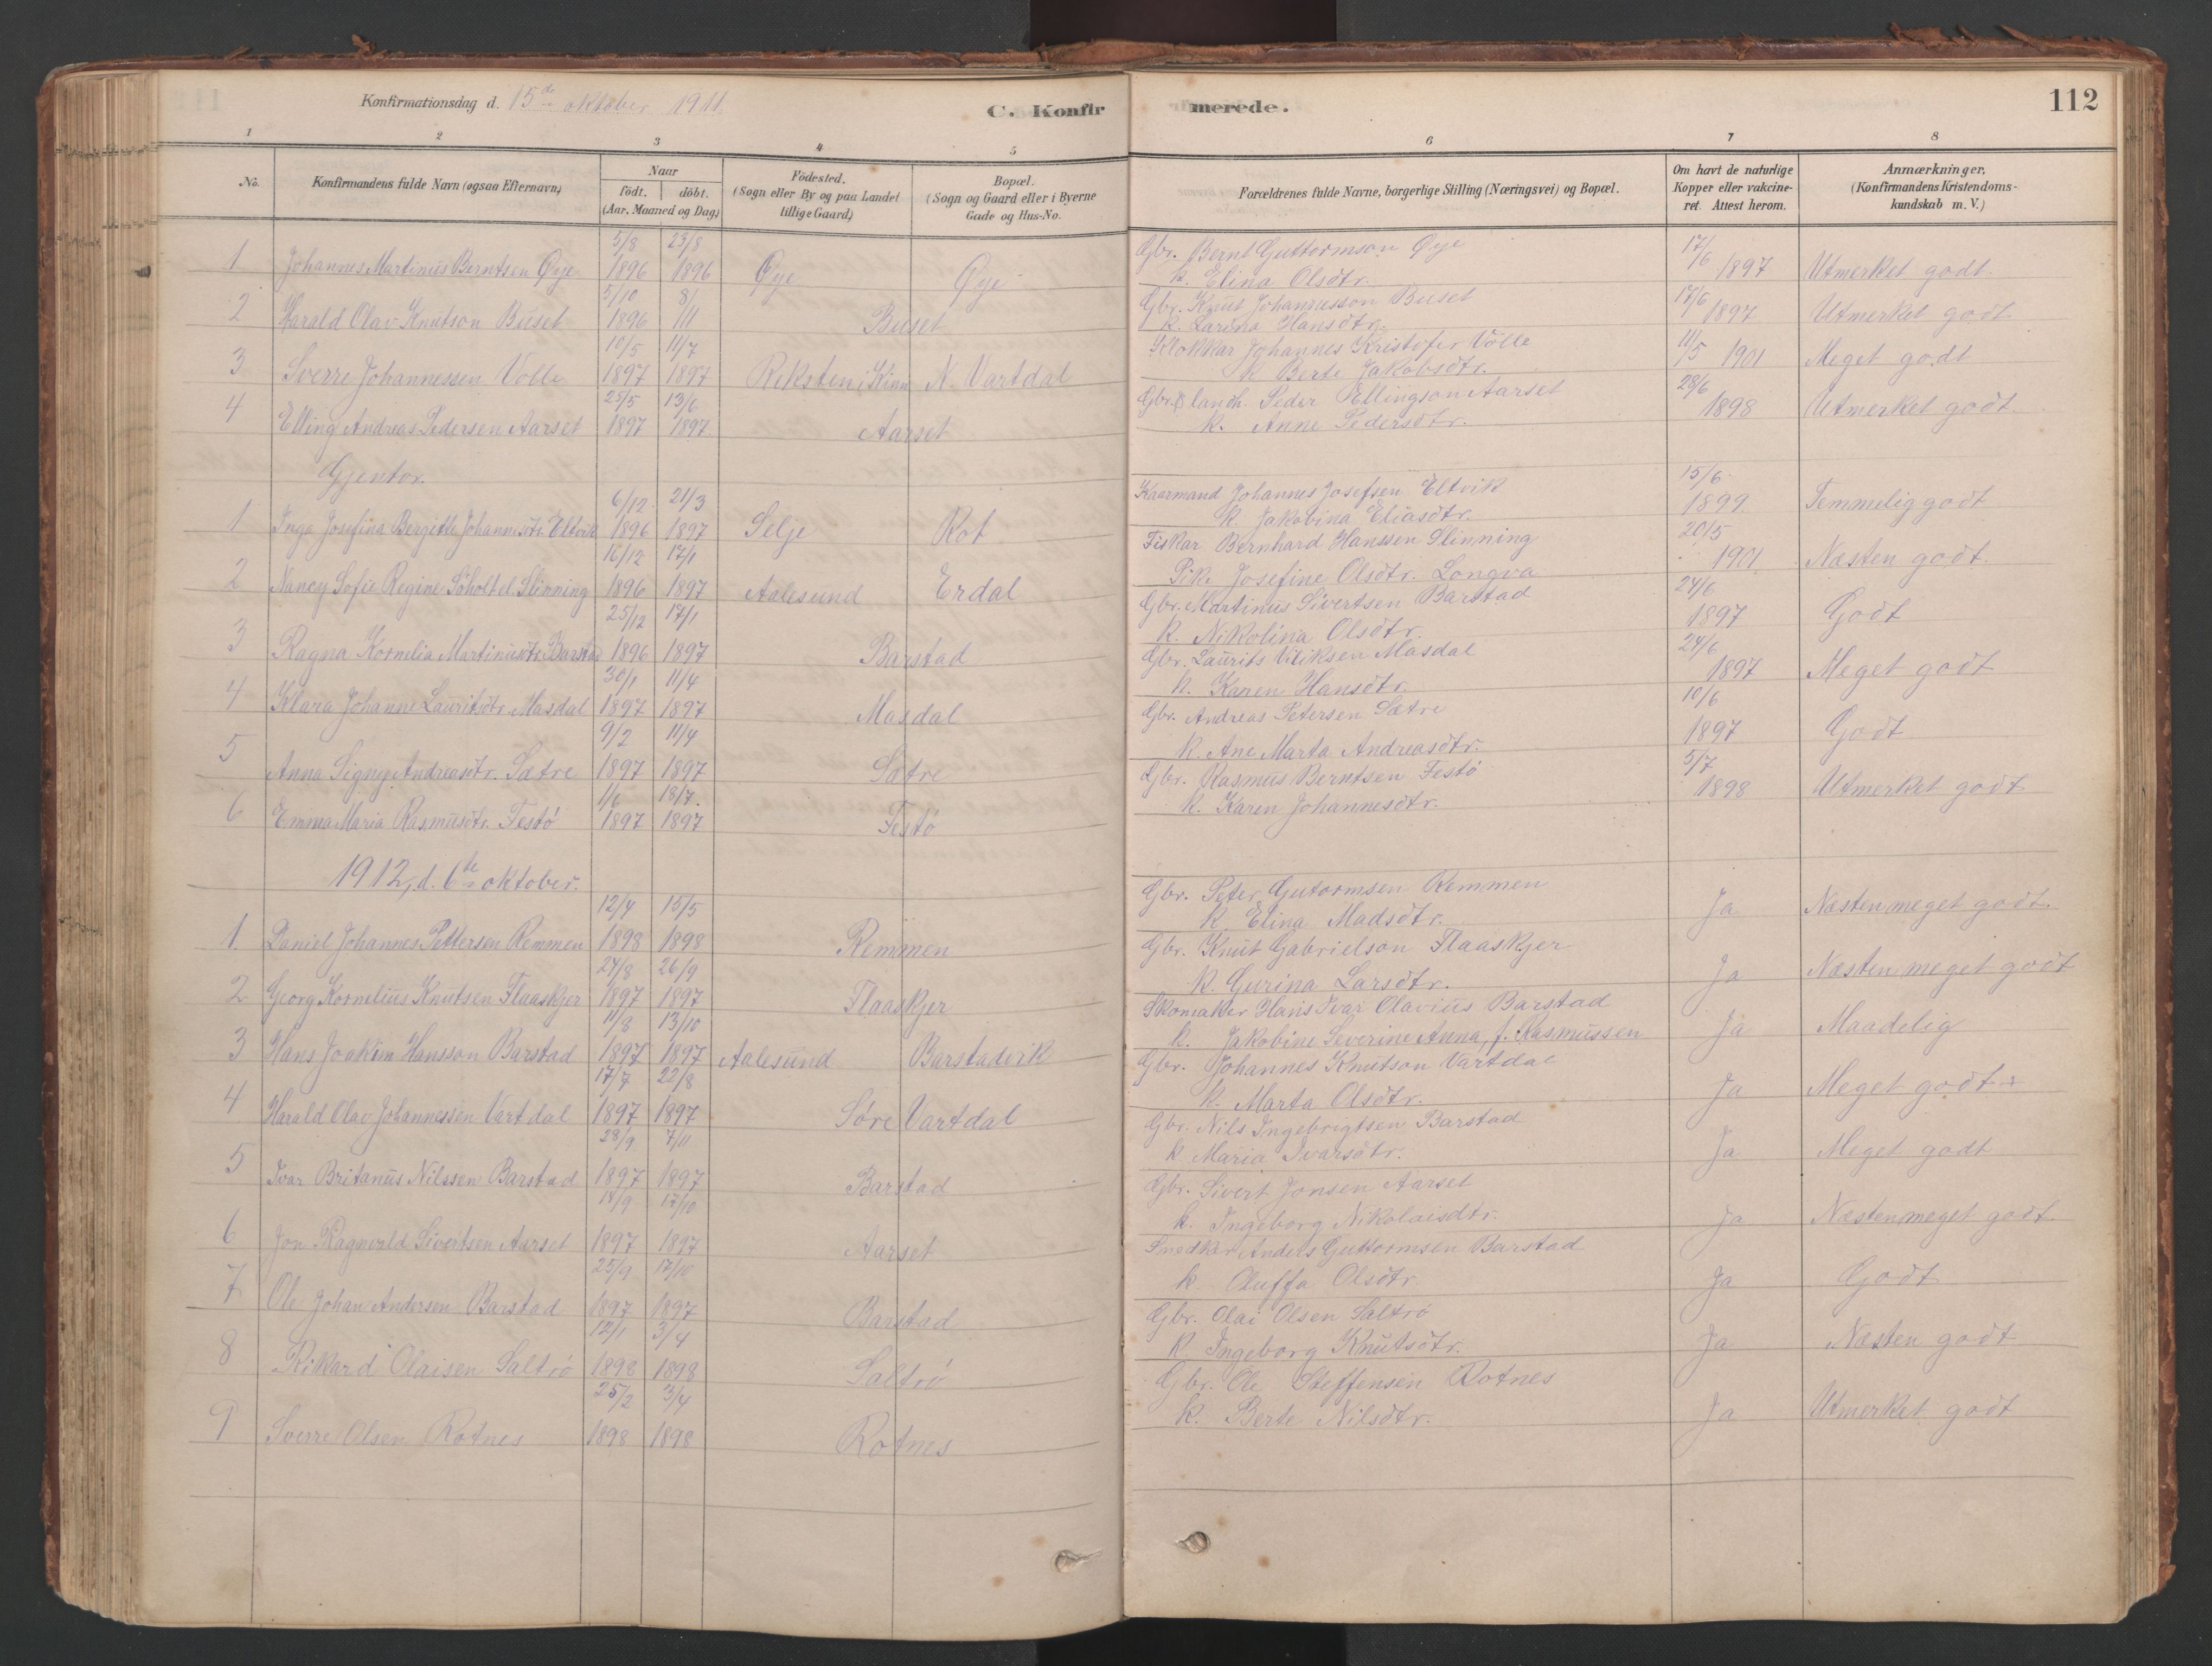 Konfirmationsdag d. 15de oktober 1911.
C. Konfirmerede.
112
1 2 3 4 5 6 7 8
No.
Konfirmandens fulde Navn (ogsaa Efternavn)
Naar
födt. döbt.
(Aar, Maaned og Dag)
Födested.
(Sogn eller By og paa Landet
tillige Gaard)
Bopæl.
(Sogn og Gaard eller i Byerne
Gade og Hus-No.
Forældrenes fulde Navne, borgerlige Stilling (Næringsvei) og Bopæl.
Om havt de naturlige
Kopper eller vakcine-
ret. Attest herom.
Anmærkninger,
(Konfirmandens Kristendoms-
kundskab m. V.)
5/8 23/8 Gbr. Bernt Guttormson Øye 17/6
1 Johannes Martinus Berntsen Øye 1896 1896 Øye Øye k. Elina Olsdtr. 1897 Utmerket godt.
5/10 8/1 Gbr. Knut Johannesson Buset 17/6
2 Harald Olav Knutson Buset 1896 Buset k. Larina Hansdtr. 1897 Utmerket godt
10/5 11/7 Klokkar Johannes Kristofer Völle 11/5
3 Sverre Johannessen Völle 1897 1897 Reksten i Kinn N. Vartdal k. Berte Jakobsdtr. 1901 Meget godt
25/5 13/6 Gbr. & landh. Peder Ellingson Aarset 28/6
4 Elling Andreas Pedersen Aarset 1897 1897 Aarset k. Anne Pedersdtr. 1898 Utmerket godt.
Gjentor.
6/12 21/3 Kaarmand Johannes Josefsen Eltvik 15/6
1 Inga Josefina Bergitte Johannesdtr. Eltvik 1896 1897 Selje Rot k. Jakobina Eliasdtr. 1899 Temmelig godt
16/12 17/1 Fiskar Bernhard Hanssen Slinning 20/5
2 Nancy Sofie Regine Söholt el. Slinning 1896 1897 Aalesund Erdal Pike Josefine Olsdtr. Longva 1901 Næsten godt.
25/12 17/1 Gbr. Martinus Sivertsen Barstad 24/6
3 Ragna Kornelia Martinusdtr. Barstad 1896 1897 Barstad k. Nikolina Olsdtr. 1897 Godt
30/1 11/4 Gbr. Laurits Masdal 24/6
4 Klara Johanne Lauritsdtr. Masdal 1897 1897 Masdal k. Karen Hansdtr. 1897 Meget godt
9/2 11/4 Gbr. Andreas Petersen Sætre 10/6
5 Anna Signy Andreasdtr. Sætre 1897 1897 Sætre k. Ane Marta Andreasdtr. 1897 Godt
1/6 18/7. Gbr. Rasmus Berntsen Festö 5/7
6 Emma Maria Rasmusdtr. Festö 1897 1897 Festö k. Karen Johannesdtr. 1898 Utmerket godt
1912, d. 6te oktober.
12/4 15/5 Gbr. Peter Gutormsen Remmen
1 Daniel Johannes Pettersen Remmen 1898 1898 Remmen k. Elina Madsdtr. Ja Næsten meget godt.
24/8 26/9 Gbr. Knut Gabrielson Flaaskjer
2 Georg Kornelius Knutsen Flaaskjer 1897 1897 Flaaskjer k. Gurina Larsdtr. Ja Næsten meget godt
11/8 13/10 Skomaker Hans Ivar Olavius Barstad
3 Hans Joakim Hansson Barstad 1897 1897 Aalesund Barstadvik k. Jakobine Severine Anna, f. Rasmussen Ja Maadelig
17/7 22/8 Gbr. Johannes Knutson Vartdal
4 Harald Olav Johannessen Vartdal 1897 1897 Söre Vartdal k. Marta Olsdtr. Ja Meget godt
28/9 7/11 Gbr. Nils Ingebrigtsen Barstad
5 Ivar Britanus Nilssen Barstad 1897 1897 Barstad k Maria Ivarsdtr. Ja Meget godt
18/9 17/10 Gbr. Sivert Jonsen Aarset
6 Jon Ragnvald Sivertsen Aarset 1897 1897 Aarset k. Ingeborg Nikolaisdtr. Ja Næsten meget godt
25/9 17/10 Snedkar Anders Guttormsen Barstad
7 Ole Johan Andersen Barstad 1897 1897 Barstad k. Oluffa Olsdtr. Ja Godt
12/1 3/4 Gbr. Olai Olsen Saltrö
8 Rikard Olaisen Saltrö 1898 1898 Saltrö k. Ingeborg Knutsdtr. Ja Næsten godt
25/2 3/4 Gbr. Ole Steffensen Rotnes
9 Sverre Olsen Rotnes 1898 1898 Rotnes k. Berte Nilsdtr. Ja Utmerket godt